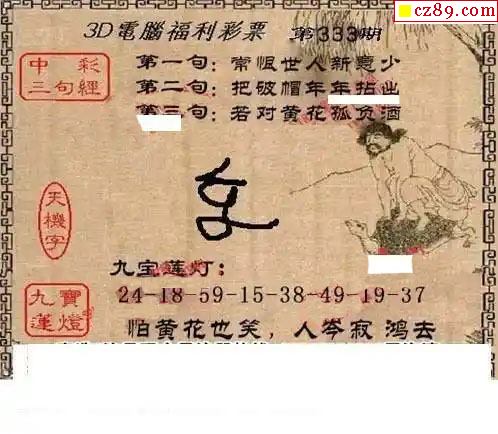 cz89.com
3D電腦福利彩票 第333期
中彩
三句經
第一句：常恨世人新意少
第二句：把破帽年年拈出
第三句：若对黄花孤负酒
天機字
九宝莲灯：
九寶
蓮燈
24-18-59-15-38-49-19-37
怕黄花也笑，人岑寂 鸿去